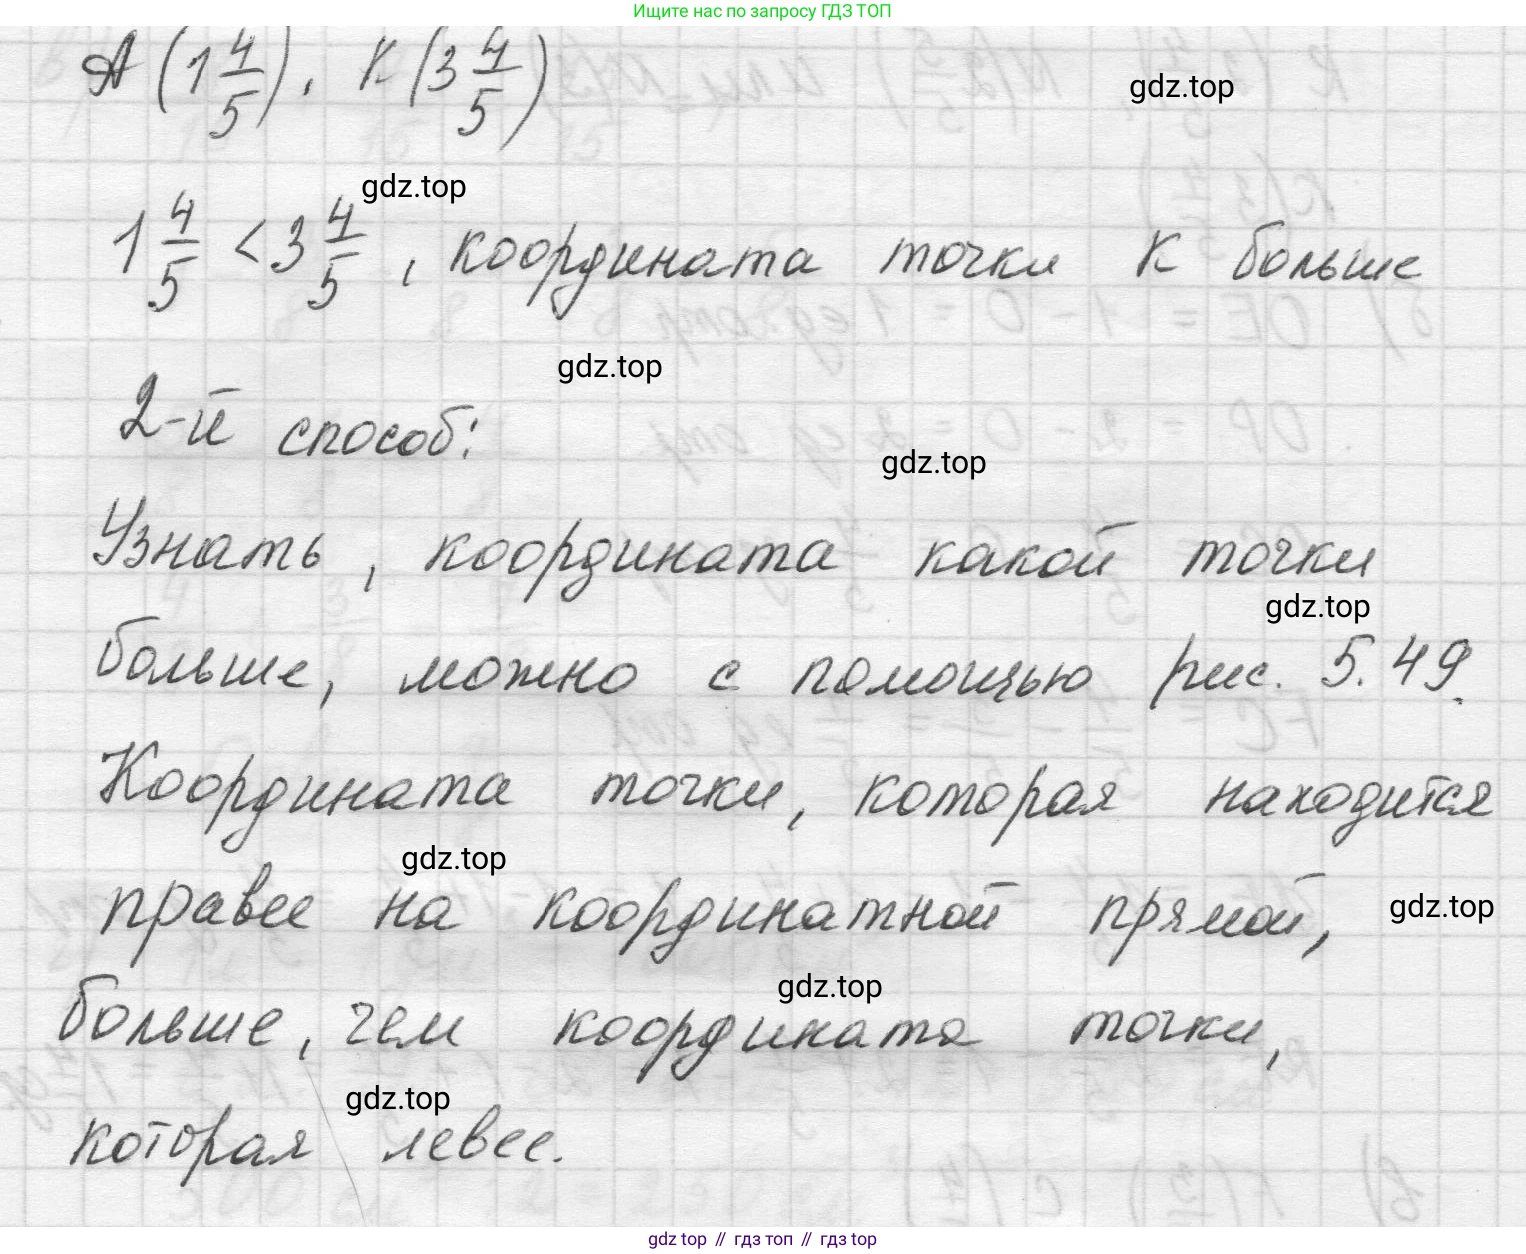 Ищите нас по запросу ГДЗ ТОП
A (1 4/5), K (3 4/5)
gdz.top
gdz.top
1 4/5 < 3 4/5, координата точки K больше
gdz.top
2-й способ:
gdz.top
Узнать, координата какой точки
gdz.top
больше, можно с помощью рис. 5.49.
Координата точки, которая находится
gdz.top
правее на координатной прямой,
gdz.top
gdz.top
больше, чем координата точки,
gdz.top
которая левее.
gdz top // гдз топ // гдз top